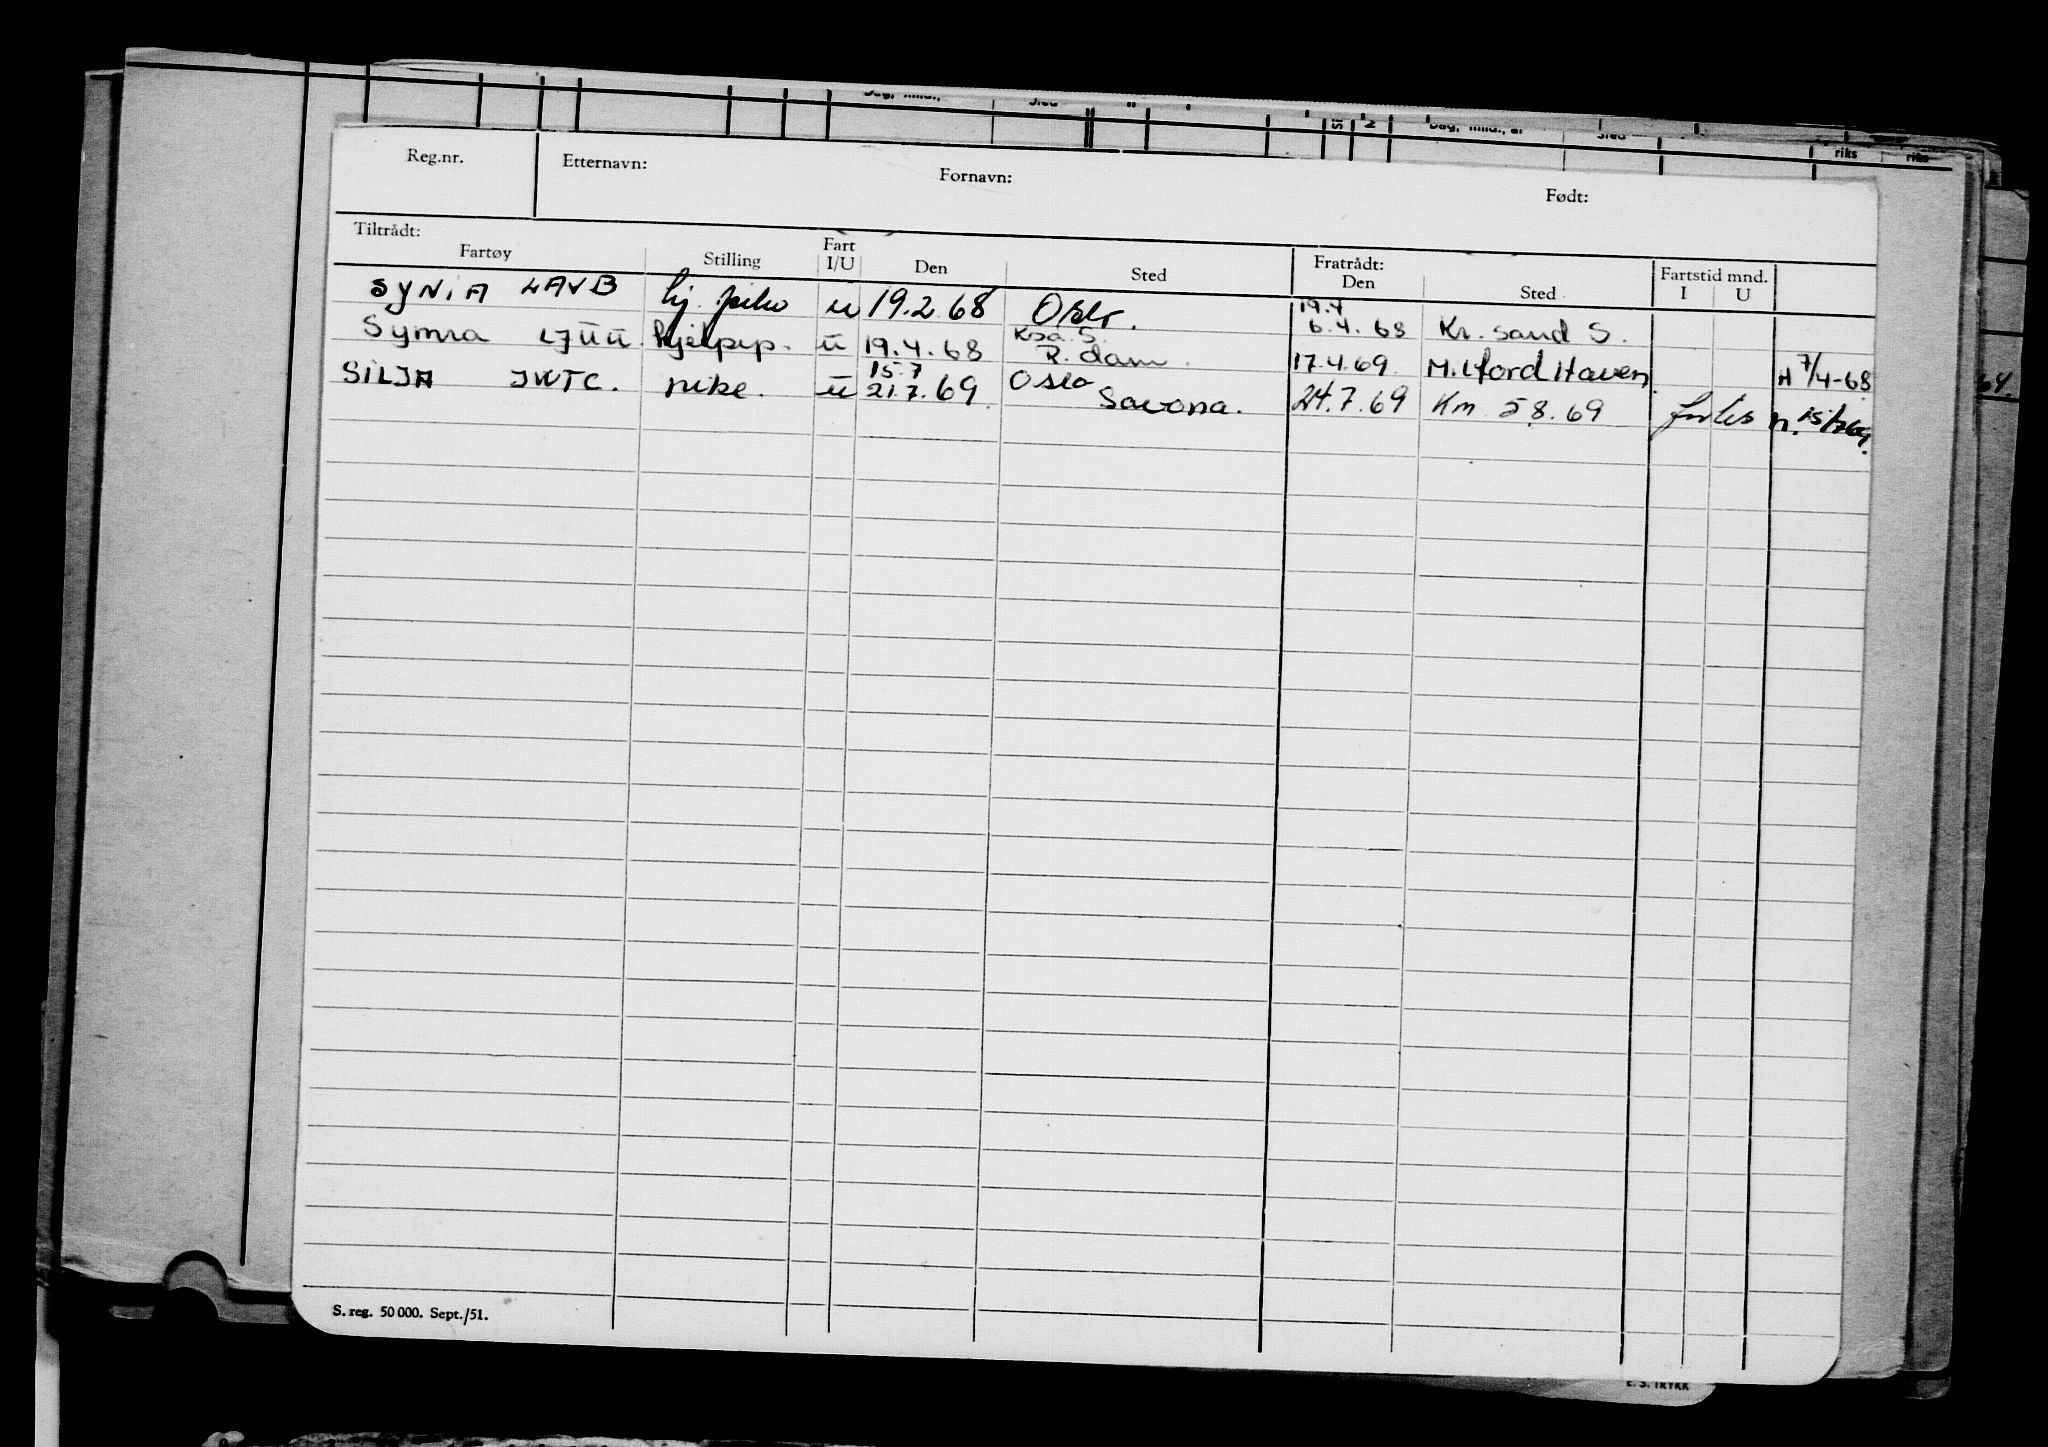 Reg.nr. Etternavn: Fornavn: Født:
Tiltrådt: Fratrådt: Fartstid mnd.
Fartøy Stilling Fart I/U Den Sted Den Sted I U
SYNIA LAVB hj. u 19.2.68 Oslo. 19.4 6.4.68 Kr. sand S.
Symra LJUU hjelpep. u 19.4.68 Ksa. S. R. dam. 17.4.69 Milford Haven H 7/4-68
SILJA JWTC. pike. u 15.7 21.7.69 Oslo Savona. 24.7.69 Km 5.8.69 n. 15/7 69.
S. reg. 50 000. Sept./51.
E. S. TRYKK
riks riks
64.